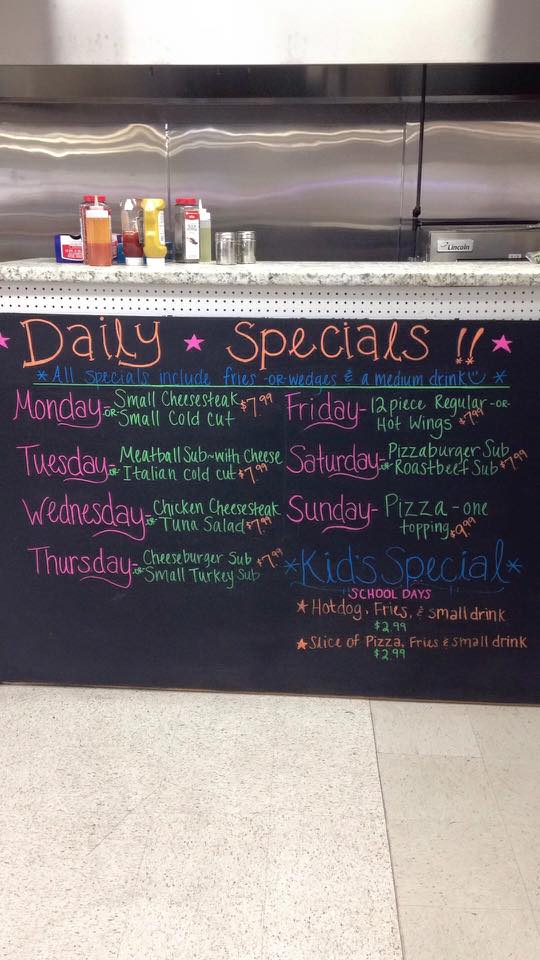 Lincoln
Daily ★ Specials !!
*All specials include fries -or- wedges & a medium drink☺*
Monday- Small Cheesesteak
-OR- Small Cold Cut $7.99
Tuesday- Meatball Sub-with Cheese
or Italian cold cut $7.99
Wednesday- Chicken Cheesesteak
or Tuna Salad $7.99
Thursday- Cheeseburger Sub
or Small Turkey Sub $7.99
Friday- 12 piece Regular -or-
Hot Wings $7.99
Saturday- Pizzaburger Sub
or Roastbeef Sub $7.99
Sunday- Pizza - one
topping $9.99
*Kid's Special*
SCHOOL DAYS
★ Hotdog, Fries, & small drink
$2.99
★ Slice of Pizza, Fries & small drink
$2.99